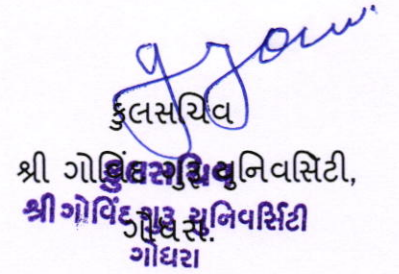 કુલસચિવ
શ્રી ગોવિંદ ગુરૂ યુનિવર્સિટી,
ગોધરા.
કુલસચિવ
શ્રી ગોવિંદ ગુરૂ યુનિવર્સિટી
ગોધરા